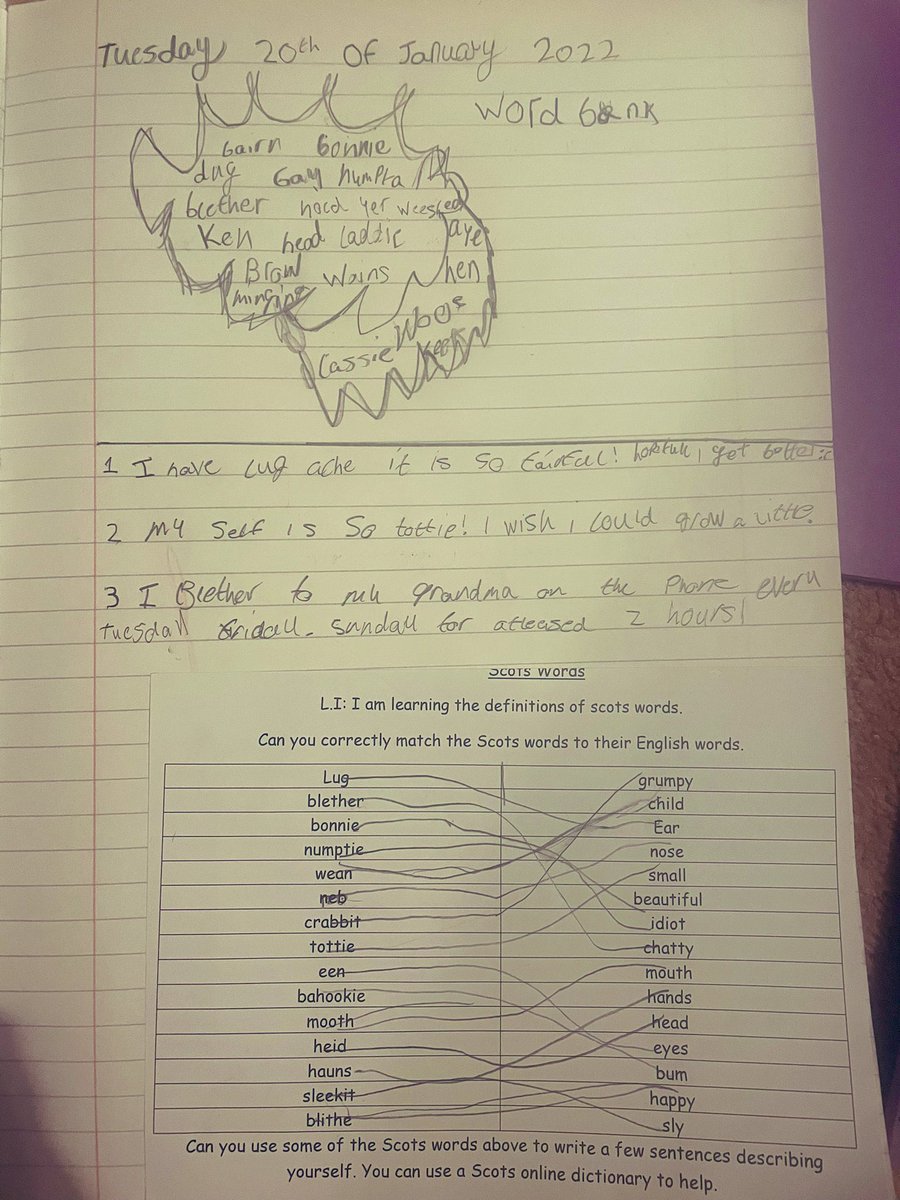 Tuesday 20th Of January 2022
Word bank
bairn bonnie
dug
blether
Ken head laddie aye
Braw Wains hen
minging
Lassie
1 I have Lug ache it is so Painful! hopefull i get better :c
2 my self is So tottie! I wish i could grow a little.
3 I Blether to my grandma on the Phone every
tuesday friday. sunday for atleased 2 hours!
Scots Words
L.I: I am learning the definitions of scots words.
Can you correctly match the Scots words to their English words.
Lug grumpy
blether child
bonnie Ear
numptie nose
wean small
neb beautiful
crabbit idiot
tottie chatty
een mouth
bahookie hands
mooth head
heid eyes
hauns bum
sleekit happy
blithe sly
Can you use some of the Scots words above to write a few sentences describing
yourself. You can use a Scots online dictionary to help.